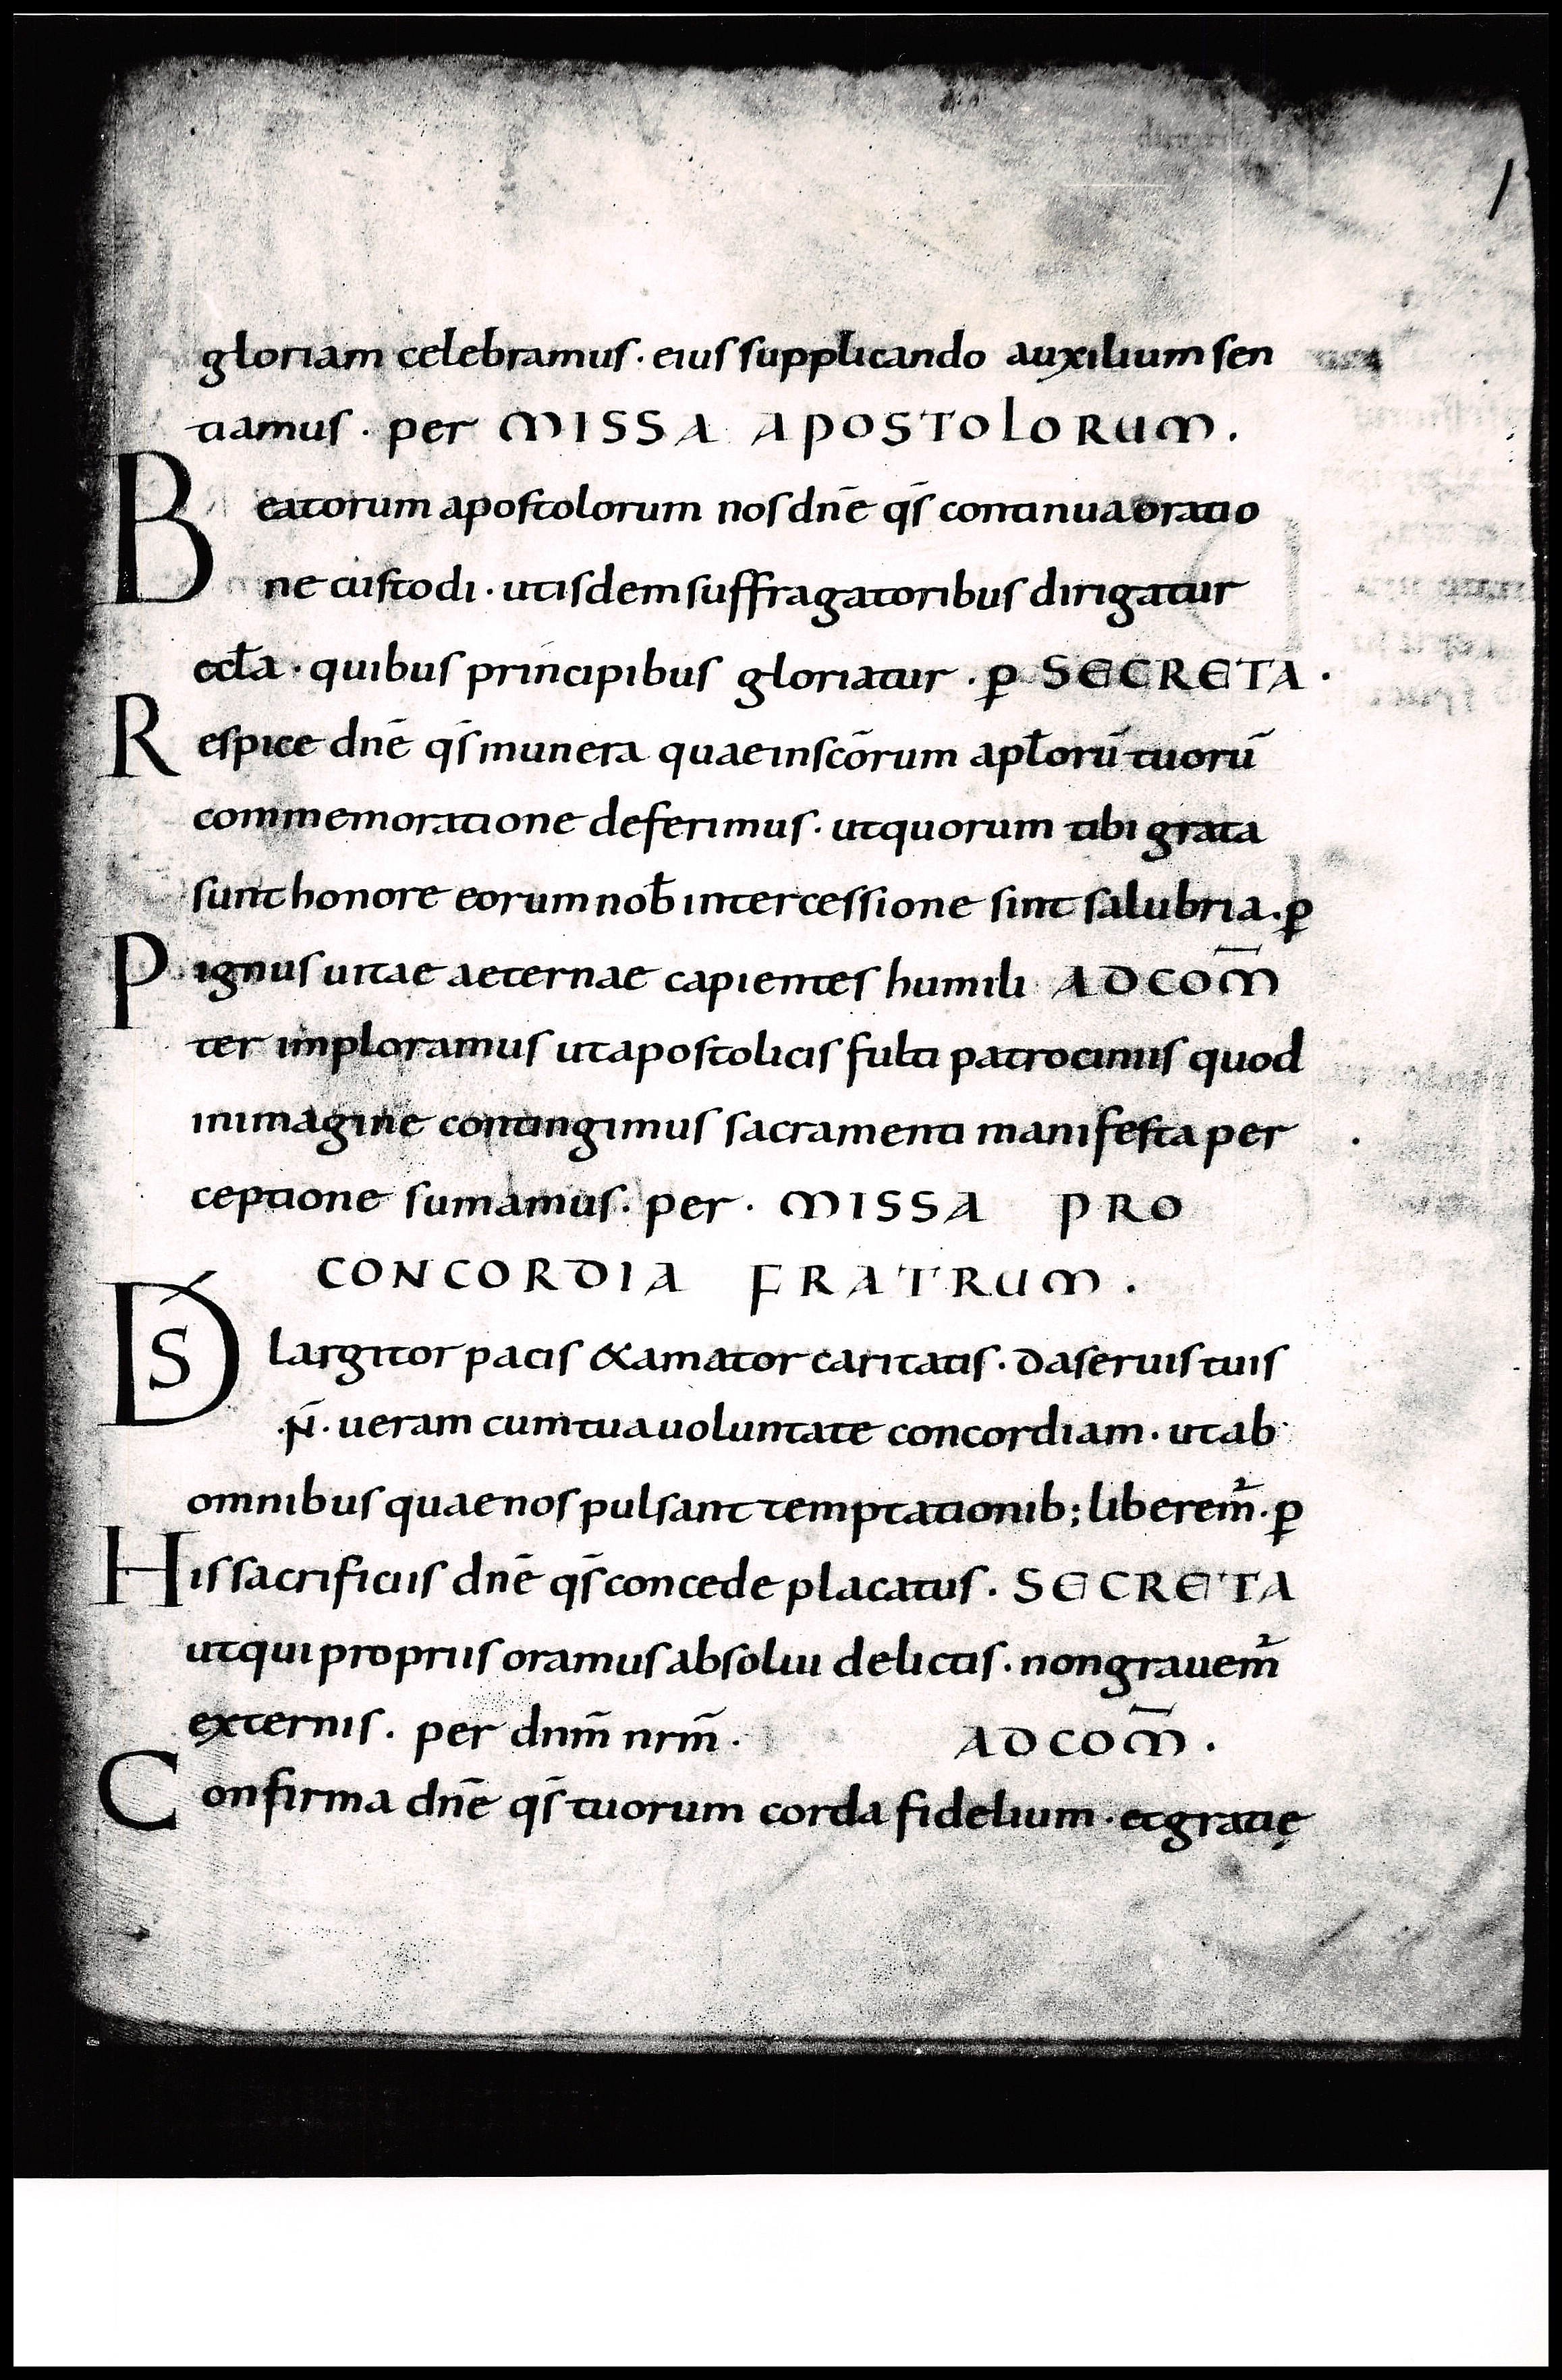 gloriam celebramus · eius supplicando auxilium sen
tiamus · per MISSA APOSTOLORUM .
Beatorum apostolorum nos dnē qs̄ continua oratio
ne custodi · ut isdem suffragatoribus dirigatur
eccƚa · quibus principibus gloriatur · p̱ SECRETA ·
Respice dnē qs̄ munera quae in scōrum apƚorū tuorū
commemoratione deferimus · ut quorum tibi grata
sunt honore eorum nob̄ intercessione sint salubria · p̱
Pignus uitae aeternae capientes humili AD COM̄
ter imploramus ut apostolicis fulti patrociniis quod
in imagine contingimus sacramenti manifesta per
ceptione sumamus · per · MISSA PRO
CONCORDIA FRATRUM .
DS largitor pacis & amator caritatis · da seruis tuis
·N̄· ueram cum tua uoluntate concordiam · ut ab
omnibus quae nos pulsant temptationib; liberem̄ · p̱
His sacrificiis dnē qs̄ concede placatus · SECRETA
ut qui propriis oramus absolui delictis · non grauem̄
externis · per dnm̄ nrm̄ ·
AD COM̄ .
Confirma dnē qs̄ tuorum corda fidelium · et gratię